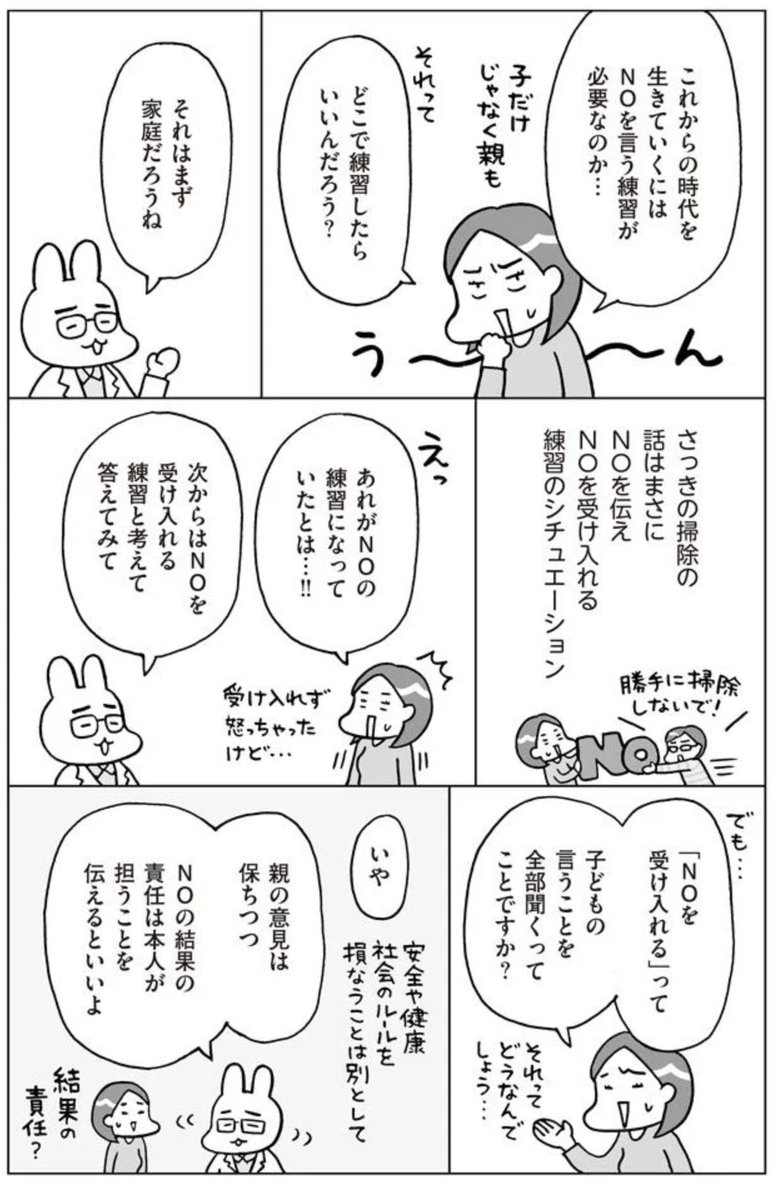 これからの時代を
生きていくには
NOを言う練習が
必要なのか…
子だけ
じゃなく親も
それって
どこで練習したら
いいんだろう？
う〜〜ん
それはまず
家庭だろうね
さっきの掃除の
話はまさに
NOを伝え
NOを受け入れる
練習のシチュエーション
勝手に掃除
しないで！
NO
えっ
あれがNOの
練習になって
いたとは…!!
受け入れず
怒っちゃった
けど…
次からはNOを
受け入れる
練習と考えて
答えてみて
でも…
「NOを
受け入れる」って
子どもの
言うことを
全部聞くって
ことですか？
それって
どうなんで
しょう…
いや
安全や健康
社会のルールを
損なうことは別として
親の意見は
保ちつつ
NOの結果の
責任は本人が
担うことを
伝えるといいよ
結果の
責任？